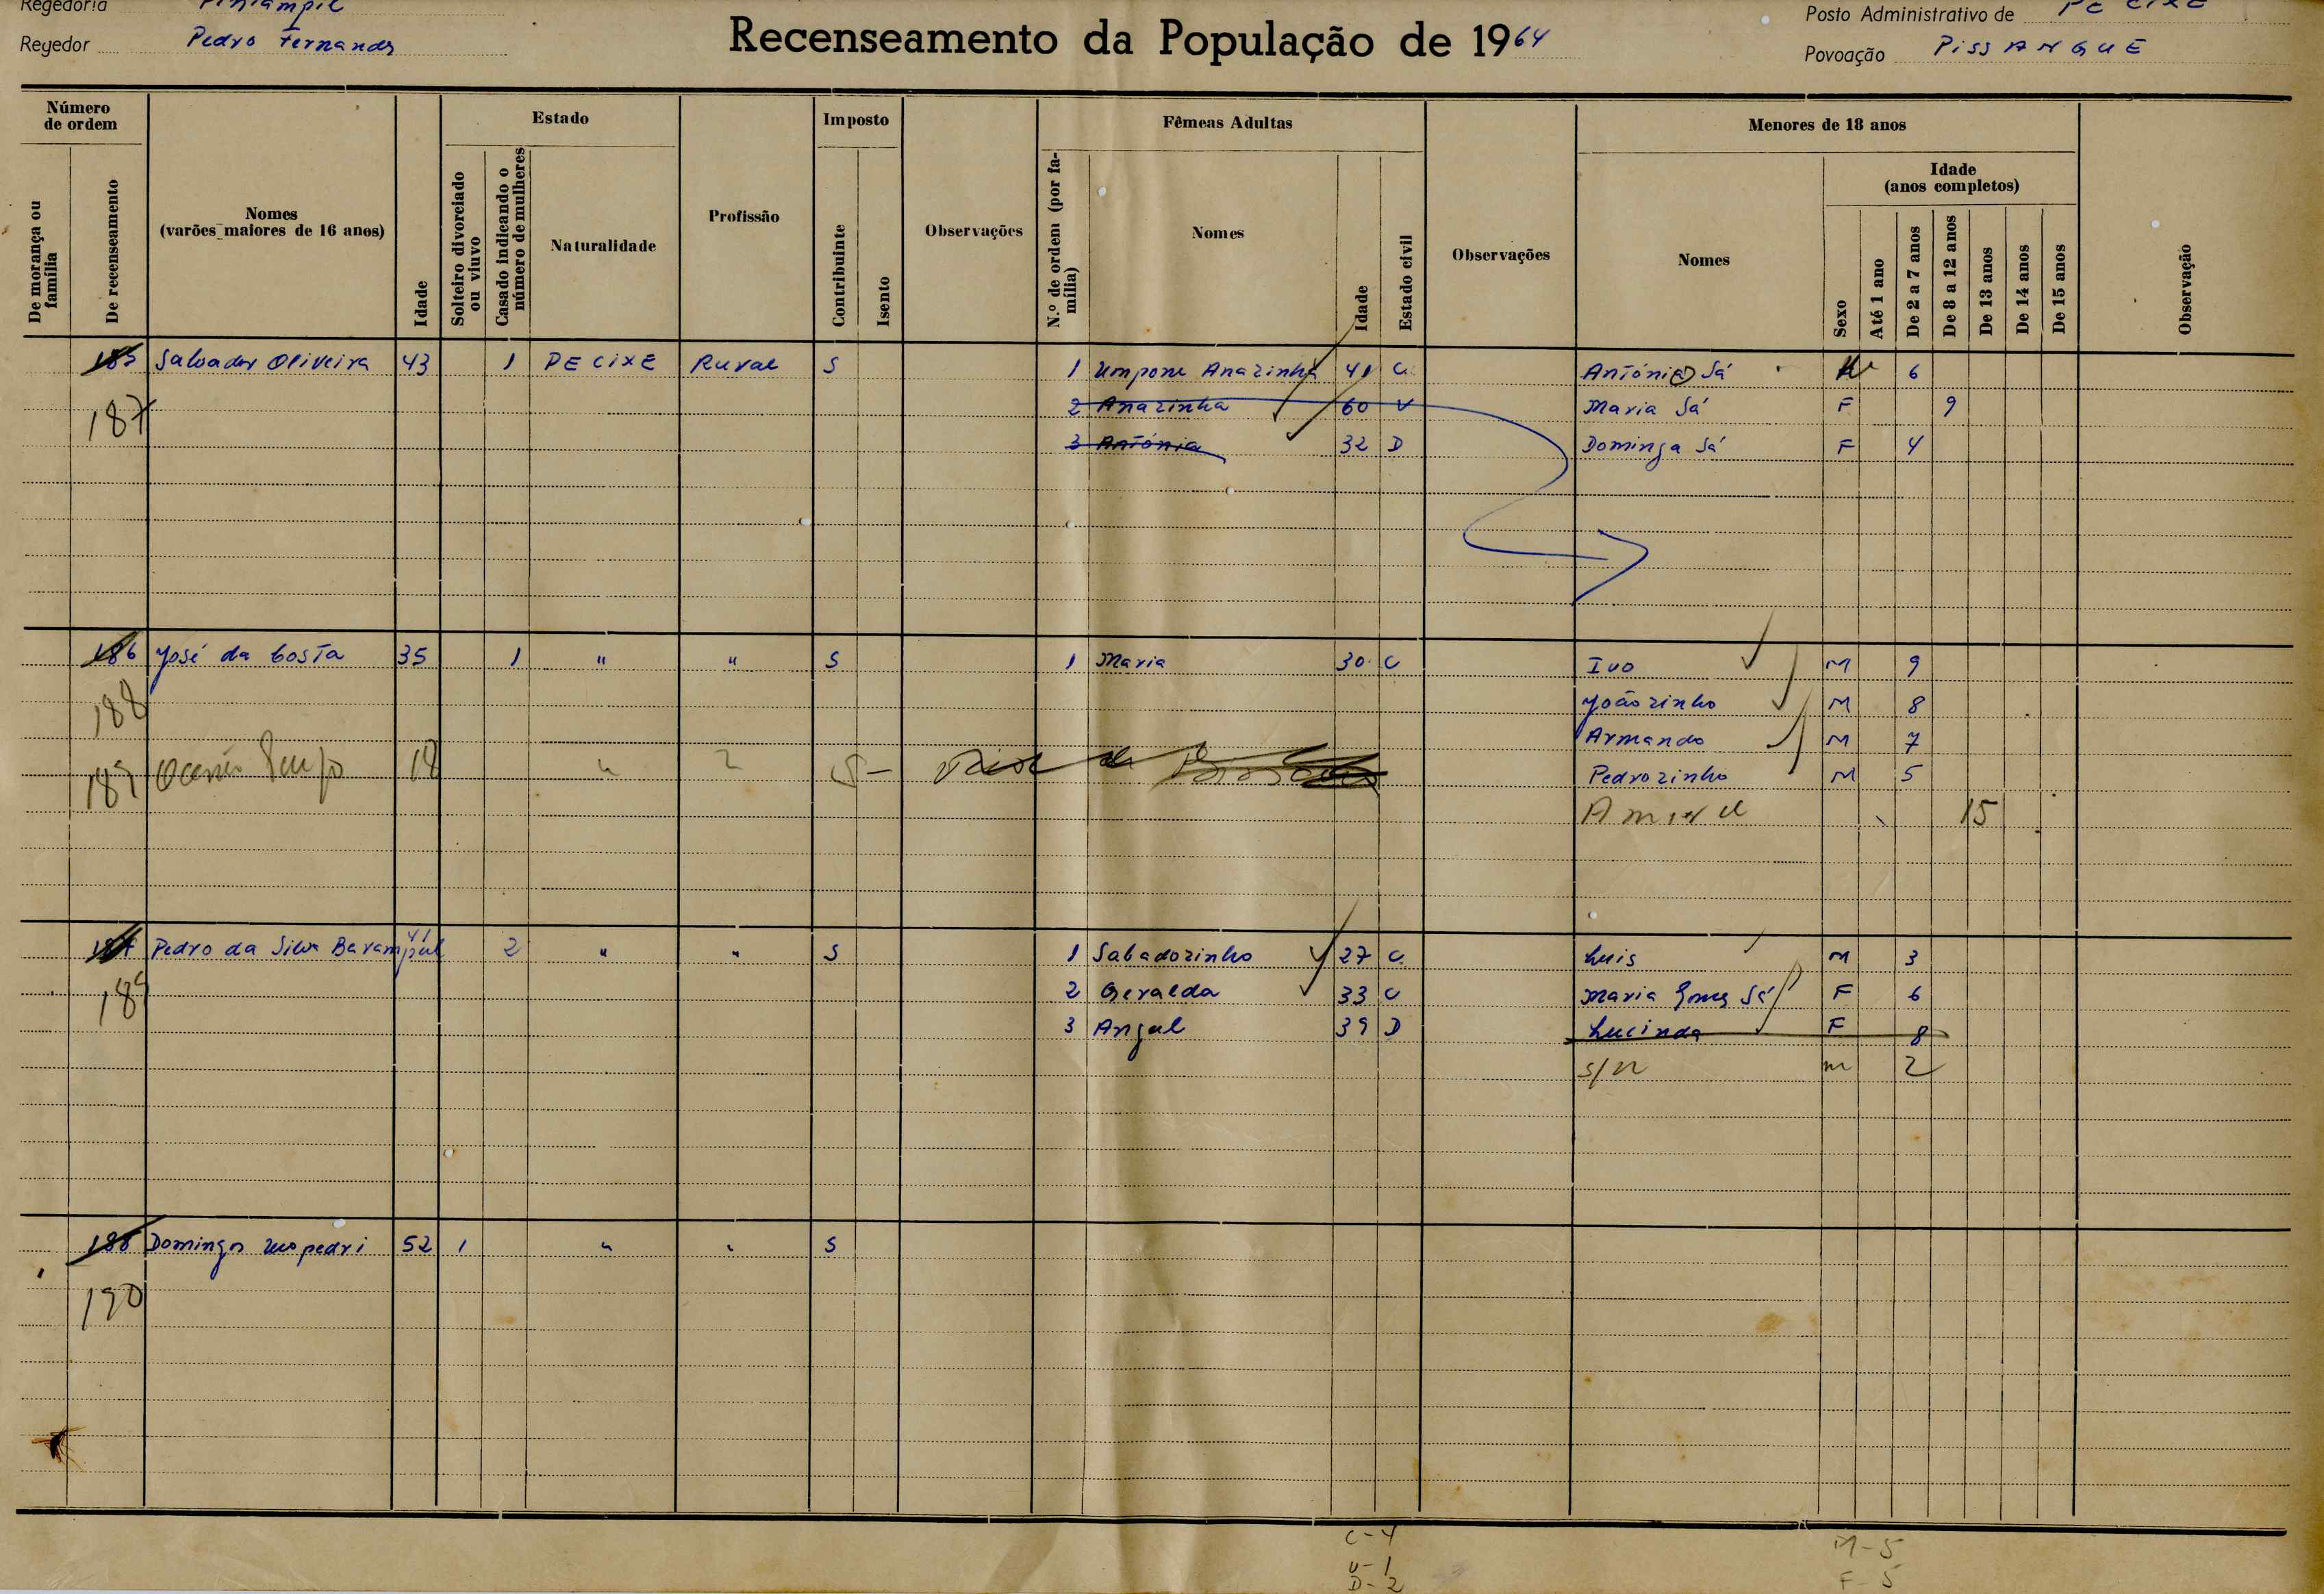 Regedoria
Regedor Pedro Fernandes
Recenseamento da População de 1964
Posto Administrativo de PECIXE
Povoação PISSANGUE
Número de ordem
De morança ou família
De recenseamento
Nomes (varões maiores de 16 anos)
Idade
Estado
Solteiro divorciado ou viuvo
Casado indicando o número de mulheres
Naturalidade
Profissão
Imposto
Contribuinte
Isento
Observações
Fêmeas Adultas
N.º de ordem (por família)
Nomes
Idade
Estado civil
Observações
Menores de 18 anos
Nomes
Idade (anos completos)
Sexo
Até 1 ano
De 2 a 7 anos
De 8 a 12 anos
De 13 anos
De 14 anos
De 15 anos
Observação
185 Salvador Oliveira 43 1 PECIXE Rural S 1 Umpone Anazinha 41 C António Sá 6
187 2 Anazinha 60 V Maria Sá F 9
3 Antónia 32 D Dominga Sá F 4
186 José da Costa 35 1 " " S 1 Maria 30 C Ivo M 9
188 Joãozinho M 8
Armando M 7
189 18 " S Pedrozinho M 5
15
Pedro da Silva Barampul 41 2 " " S 1 Sabadozinho 27 C Luis M 3
189 2 Geralda 33 C Maria Gomes Sá F 6
3 Angul 39 D Lucinda F 8
s/n m 2
188 Domingos 52 1 " " S
190
C-4
V-1
D-2
M-5
F-5